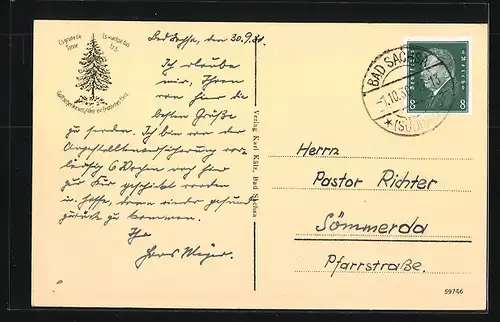 Es grüne die Tanne
Es wachse das Erz
Gott schenke uns allen ein fröhliches Herz.
Bad Sachsa, den 30.9.30.
Ich erlaube
mir, Ihnen
von hier die
besten Grüße
zu senden. Ich bin von der
Angestelltenversicherung vor-
läufig 6 Wochen nach hier
zur Kur geschickt worden
u. hoffe, dann wieder gesund
zurück zu kommen.
Ihr
Hans Meyer.
Verlag Karl Külz, Bad Sachsa
BAD SACHSA
-1.10.30
(SÜDHARZ)
Deutsches Reich
8 8
Herrn
Pastor Richter
Sömmerda
Pfarrstraße.
59746